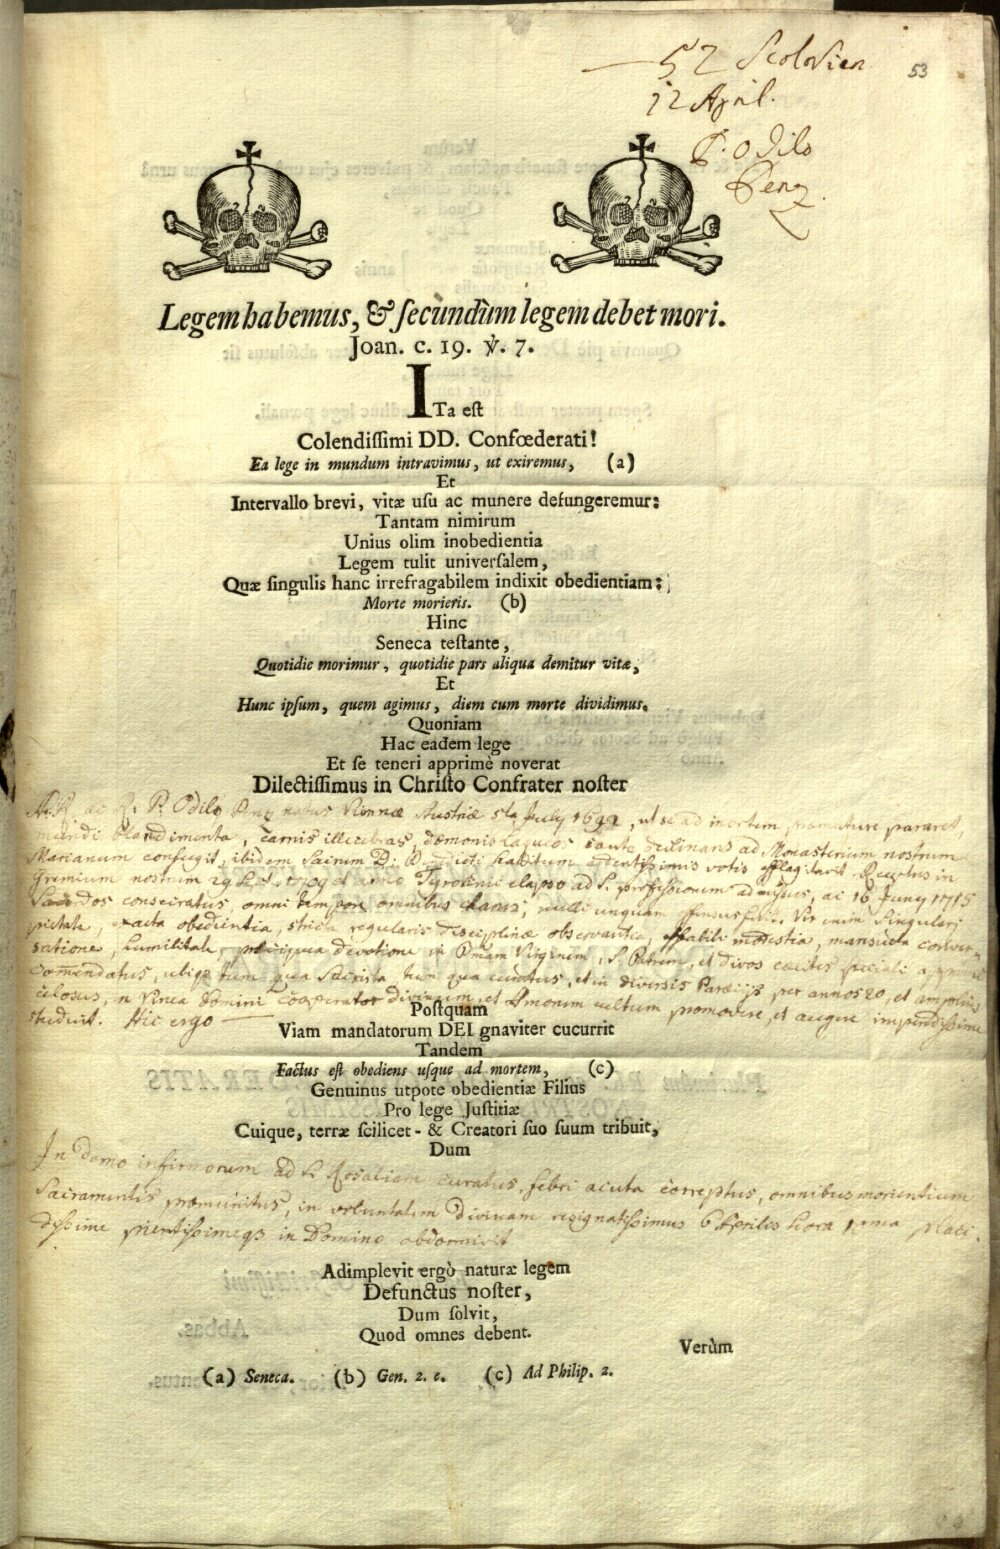 52 Scotovien
53
12 April.
P. Odilo
Penz
Legem habemus, & ſecundùm legem debet mori.
Joan. c. 19. ℣. 7.
ITa eſt
Colendiſſimi DD. Confœderati!
Ea lege in mundum intravimus, ut exiremus, (a)
Et
Intervallo brevi, vitæ uſu ac munere defungeremur:
Tantam nimirum
Unius olim inobedientia
Legem tulit univerſalem,
Quæ ſingulis hanc irrefragabilem indixit obedientiam:
Morte morieris. (b)
Hinc
Seneca teſtante,
Quotidie morimur, quotidie pars aliqua demitur vitæ,
Et
Hunc ipſum, quem agimus, diem cum morte dividimus.
Quoniam
Hac eadem lege
Et ſe teneri apprimè noverat
Dilectiſſimus in Chriſto Confrater noſter
A. R. ac R. P. Odilo Penz natus Viennæ Austriæ 5ta July 1692, ut se ad mortem præmature pararet,
mundi blandimenta, carnis illecebras, dæmonis laqueos caute declinans ad Monasterium nostrum
Marianum confugit, ibidem Sacrum D. Benedicti habitum ardentissimis votis efflagitavit. Receptus in
Gremium nostrum 1709 et anno Tyrocinii elapso ad S. professionem admissus, ac 16 Juny 1715
Sacerdos consecratus, omni tempore omnibus charus, nulli unquam offensus fuit. Vir enim Singulari
pietate, exacta obedientia, stricta regularis Disciplinæ observantia, affabili modestia, mansueta conver=
satione, humilitate, præcipua devotione in Bmam Virginem, S. Patrem, et divos cælites speciali apprime
comendatus, ubique tum qua Sacrista tum qua curatus, et in diversis Parœcijs per annos 20, et amplius
zelosus, in vinea Domini cooperator divinum, et Bmorum cultum promovere, et augere impendissime
studuit. Hic ergo
Poſtquam
Viam mandatorum DEI gnaviter cucurrit
Tandem
Factus eſt obediens uſque ad mortem, (c)
Genuinus utpote obedientiæ Filius
Pro lege Juſtitiæ
Cuique, terræ ſcilicet - & Creatori ſuo ſuum tribuit,
Dum
In domo infirmorum ad S. Rosaliam curatus, febri acuta correptus, omnibus morientium
Sacramentis præmunitus, in voluntatem divinam resignatissimus 6 Aprilis hora placi=
dissime pientissimeqs in Domino obdormivit
Adimplevit ergò naturæ legem
Defunctus noſter,
Dum ſolvit,
Quod omnes debent.
Verùm
(a) Seneca. (b) Gen. 2. c. (c) Ad Philip. 2.